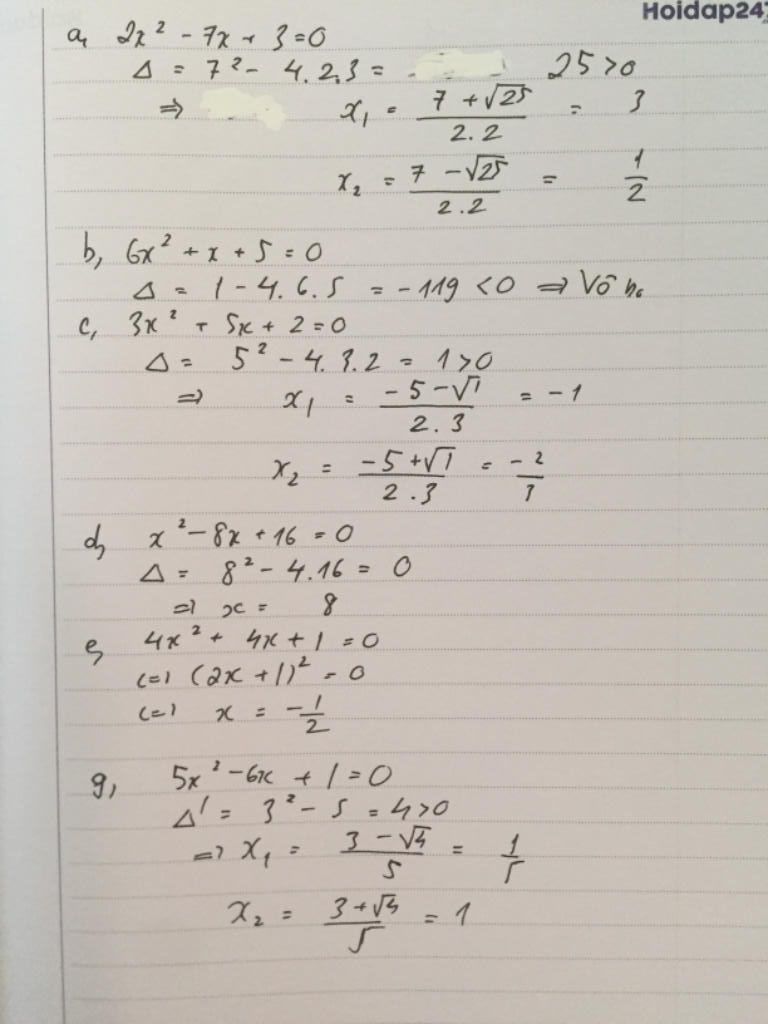 Hoidap247
a, 2x² - 7x + 3 = 0
Δ = 7² - 4.2.3 = 25 > 0
⇒ x₁ = (7 + √25)/(2.2) = 3
x₂ = (7 - √25)/(2.2) = 1/2
b, 6x² + x + 5 = 0
Δ = 1 - 4.6.5 = -119 < 0 ⇒ Vô n₀
c, 3x² + 5x + 2 = 0
Δ = 5² - 4.3.2 = 1 > 0
⇒ x₁ = (-5 - √1)/(2.3) = -1
x₂ = (-5 + √1)/(2.3) = -2/3
d, x² - 8x + 16 = 0
Δ = 8² - 4.16 = 0
⇒ x = 8
e, 4x² + 4x + 1 = 0
⇔ (2x + 1)² = 0
⇔ x = -1/2
g, 5x² - 6x + 1 = 0
Δ' = 3² - 5 = 4 > 0
⇒ x₁ = (3 - √4)/5 = 1/5
x₂ = (3 + √4)/5 = 1